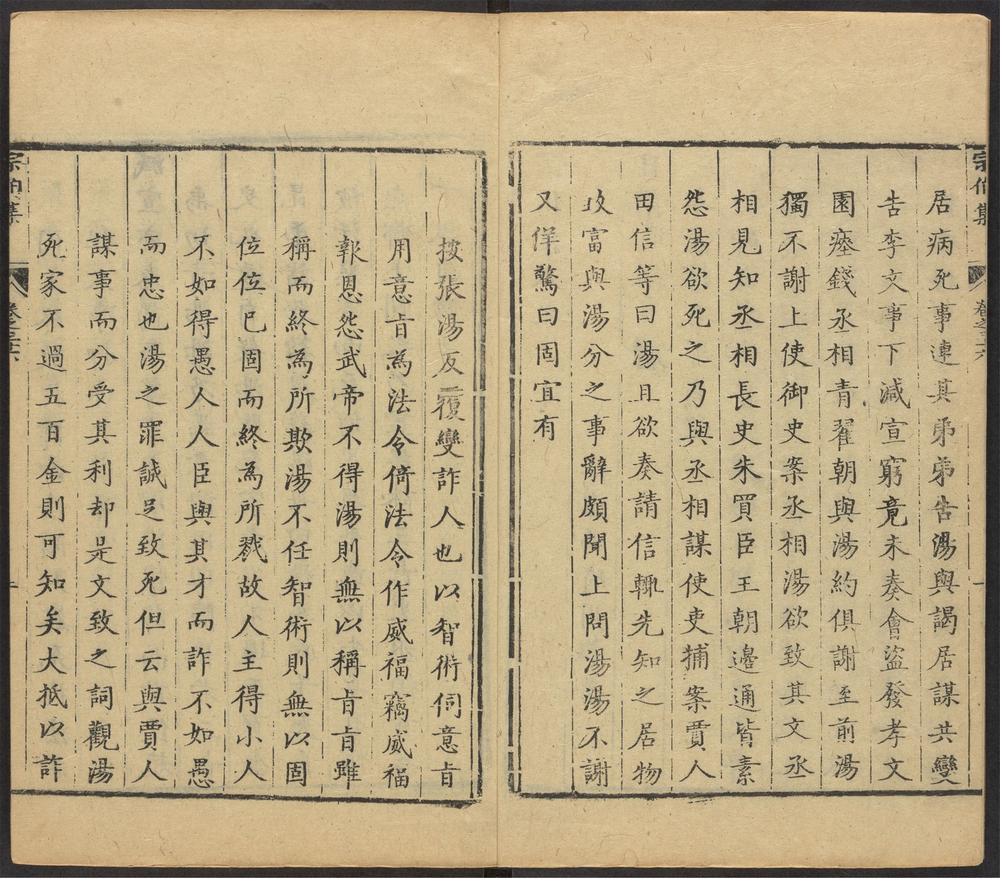 宗伯集
卷之六
一
居病死事連其弟弟告湯與謁居謀共變
告李文事下減宣窮竟未奏會盜發孝文
園瘞錢丞相青翟朝與湯約俱謝至前湯
獨不謝上使御史案丞相湯欲致其文丞
相見知丞相長史朱買臣王朝邊通皆素
怨湯欲死之乃與丞相謀使吏捕案賈人
田信等曰湯且欲奏請信輒先知之居物
致富與湯分之事辭頗聞上問湯湯不謝
又佯驚曰固宜有
按張湯反覆變詐人也以智術伺意旨
用意旨為法令倚法令作威福竊威福
報恩怨武帝不得湯則無以稱旨旨雖
稱而終為所欺湯不任智術則無以固
位位已固而終為所戮故人主得小人
不如得愚人人臣與其才而詐不如愚
而忠也湯之罪誠足致死但云與賈人
謀事而分受其利却是文致之詞觀湯
死家不過五百金則可知矣大抵以詐
宗伯集